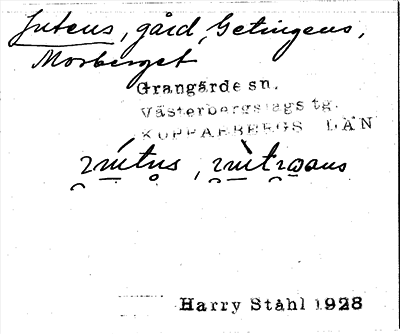 Juteus, gård, Getingens,
Morberget
Grangärde sn.
Västerbergslags tg.
KOPPARBERGS LÄN
Harry Ståhl 1928